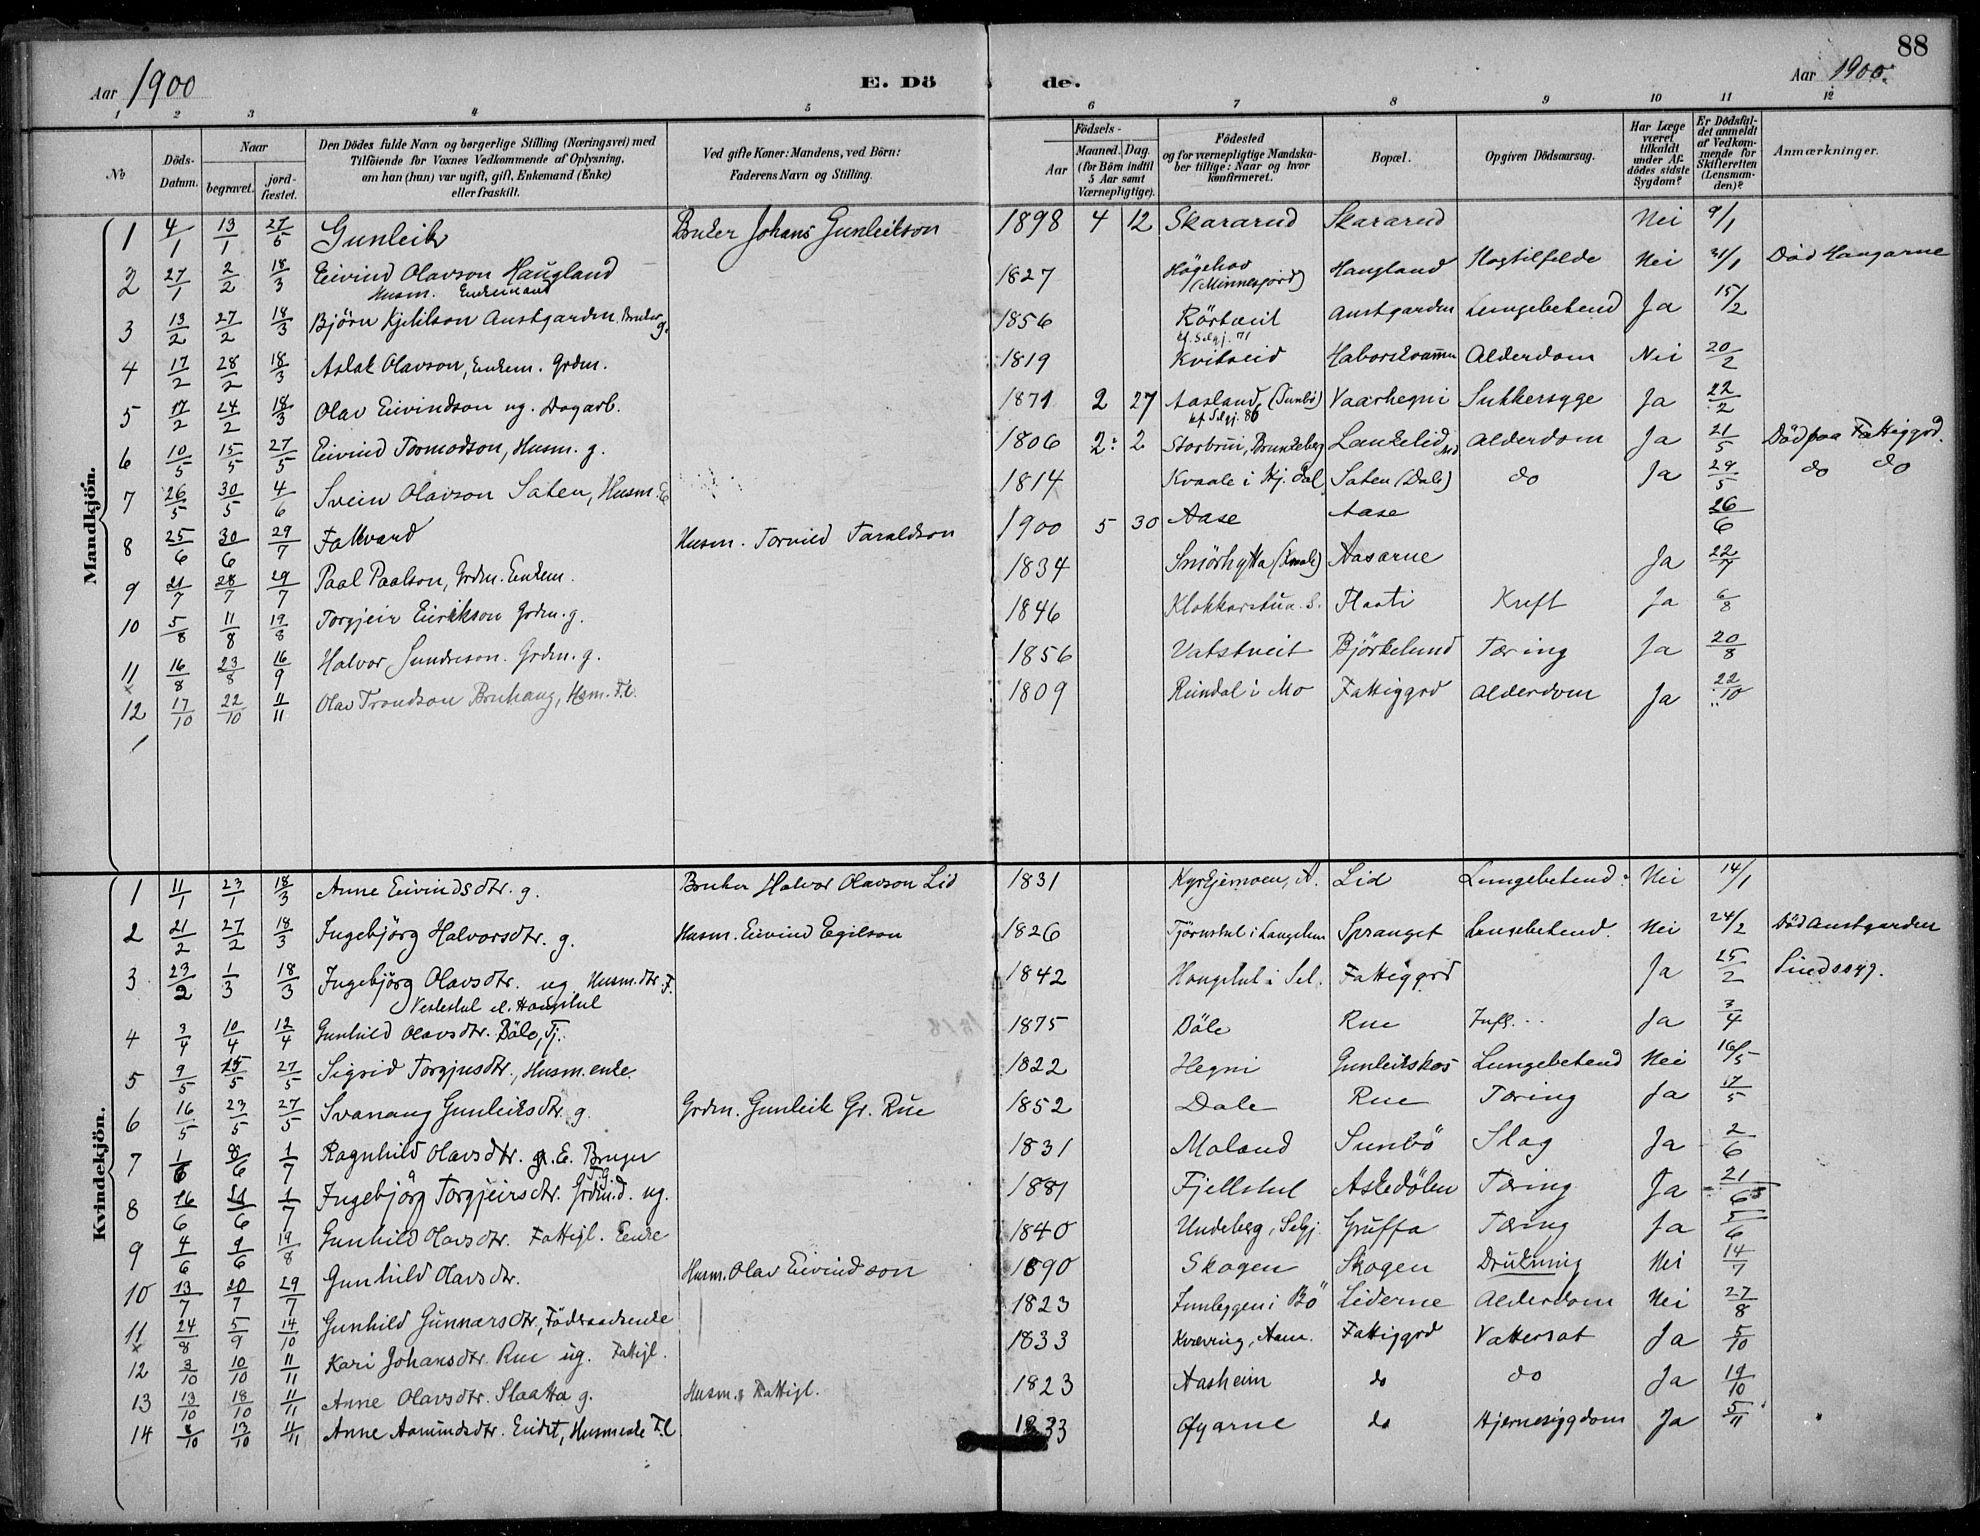 88
Aar 1900
E. Dö de.
Aar 1900.
1 2 3 4 5 6 7 8 9 10 11 12
No
Döds-Datum.
Naar
begravet.
jord-fæstet.
Den Dödes fulde Navn og borgerlige Stilling (Næringsvei) med
Tilföiende for Voxnes Vedkommende af Oplysning,
om han (hun) var ugift, gift, Enkemand (Enke)
eller fraskilt.
Ved gifte Koner: Mandens, ved Börn:
Faderens Navn og Stilling.
Födsels-
Aar
Maaned. Dag.
(for Börn indtil 5 Aar samt Værnepligtige).
Födested
og for værnepligtige Mandskaber tillige: Naar og hvor konfirmeret.
Bopæl.
Opgiven Dödsaarsag.
Har Læge været tilkaldt under Afdödes sidste Sygdom?
Er Dödsfaldet anmeldt af Vedkommende for Skifteretten (Lensmanden)?
Anmærkninger.
Mandkjön.
1 4/1 13/1 27/5 Gunleik Bruker Johans Gunleikson 1898 4 12 Skararud Skararud Nei 9/1
2 27/1 2/2 18/3 Eivind Olavson Haugland 1827 Högehov (Minnesjord) Haugland Nei 31/1 Död Haugarne
Husm. Enkemand
3 13/2 27/2 18/3 Björn Kjetilson Austgarden Bruker g. 1856 Rörtveit Austgarden Lungebetend Ja 15/2
kf. Selgj. 71
4 17/2 28/2 18/3 Aslak Olavson, Enkem. Grdm. 1819 Kvitseid Alderdom Nei 20/2
5 17/2 24/2 18/3 Olav Eivindson ug. Dagarb. 1871 2 27 Aasland, (Sunbö) Vaarhegni Sukkersyge Ja 22/2
kf Selgj. 86
6 10/5 15/5 27/5 Eivind Tormodson, Husm. g. 1806 2 2 Storbrui, Brunkeberg Lankelid Alderdom Ja 21/5 Död paa Fattiggrd.
7 26/5 30/5 4/6 Svein Olavson Saten, Husm. E 1814 Kvaale i Hj.dal Saten (Dale) do Ja 29/5 do do
8 25/6 30/6 29/7 Folkvard Husm. Torvild Taraldson 1900 5 30 Aase Aase 26/6
9 21/7 28/7 29/7 Paal Paalson, Grdm. Enkem. 1834 Smörhytta Aasarne Ja 22/7
10 5/8 11/8 19/8 Torgjeir Eirikson Grdm. g. 1846 Klokkarstua. S. Flaati Kreft Ja 6/8
11 16/8 23/8 16/9 Halvor Sundreson. Grdm. g. 1856 Vatstveit Björkelund Tæring Ja 20/8
12 17/10 22/10 11/11 Olav Trondson Bruhaug, Hsm. F.l. 1809 Reindal i Mo Fattiggrd Alderdom Ja 22/10
Kvindekjön.
1 11/1 23/1 18/3 Anne Eivindsdtr. g. Bruker Halvor Olavson Lid 1831 Kyrkjemoen, A. Lid Lungebetend. Nei 14/1
2 21/2 27/2 18/3 Ingebjörg Halvorsdtr. g. Husm. Eivind Egilson 1826 Tjörnstul i Langelim Spranget Lungebetend. Nei 24/2 Död Austgarden
3 23/2 1/3 18/3 Ingebjörg Olavsdtr. ug. Husm.dtr. F. 1842 Haugstul i Sel. Fattiggrd Ja 25/2 Sindssyg.
Vestestul el. Haugstul
4 3/4 10/4 12/4 Gunhild Olavsdtr. Böle, Tj. 1875 Böle Rue Infl... Ja 3/4
5 9/5 15/5 27/5 Sigrid Torgjusdtr., Husm.enke. 1822 Hegni Gunleikskos Lungebetend Nei 16/5
6 16/5 23/5 27/5 Svanaug Gunleiksdtr. g. Grdm. Gunleik Gr. Rue 1852 Dale Rue Tæring Ja 17/5
7 1/6 8/6 1/7 Ragnhild Olavsdtr. E. Bruger 1831 Moland Sunbö Slag Ja 2/6
8 16/6 1/7 Ingebjörg Torgjeirsdtr. Grdm.d. ug. 1881 Fjellstul Askedölen Tæring Ja 21/6
9 4/6 9/6 19/8 Gunhild Olavsdtr. Fattigl. Enke 1840 Undeberg, Selgj. Gruffa Tæring Ja 5/6
10 13/7 20/7 29/7 Gunhild Olavsdtr. Husm. Olav Eivindson 1890 Skogen Skogen Drukning Nei 14/7
11 24/8 5/9 14/10 Gunhild Gunnarsdtr., Föderaadsenke 1823 i Bö Liderne Alderdom Nei 27/8
12 3/10 10/10 11/11 Kari Johansdtr. Rue ug. Fattigl. 1833 Kværing, Aam. Fattiggrd Vattersot Ja 5/10
13 13/10 18/10 11/11 Anne Olavsdtr. Slaatta g. Husm. Fattigl. 1823 Aasheim do do Ja 19/10
14 8/10 13/10 11/11 Anne Aamundsdtr. Eidet, F.l. 1833 Öyarne do Hjernesygdom Ja 5/11